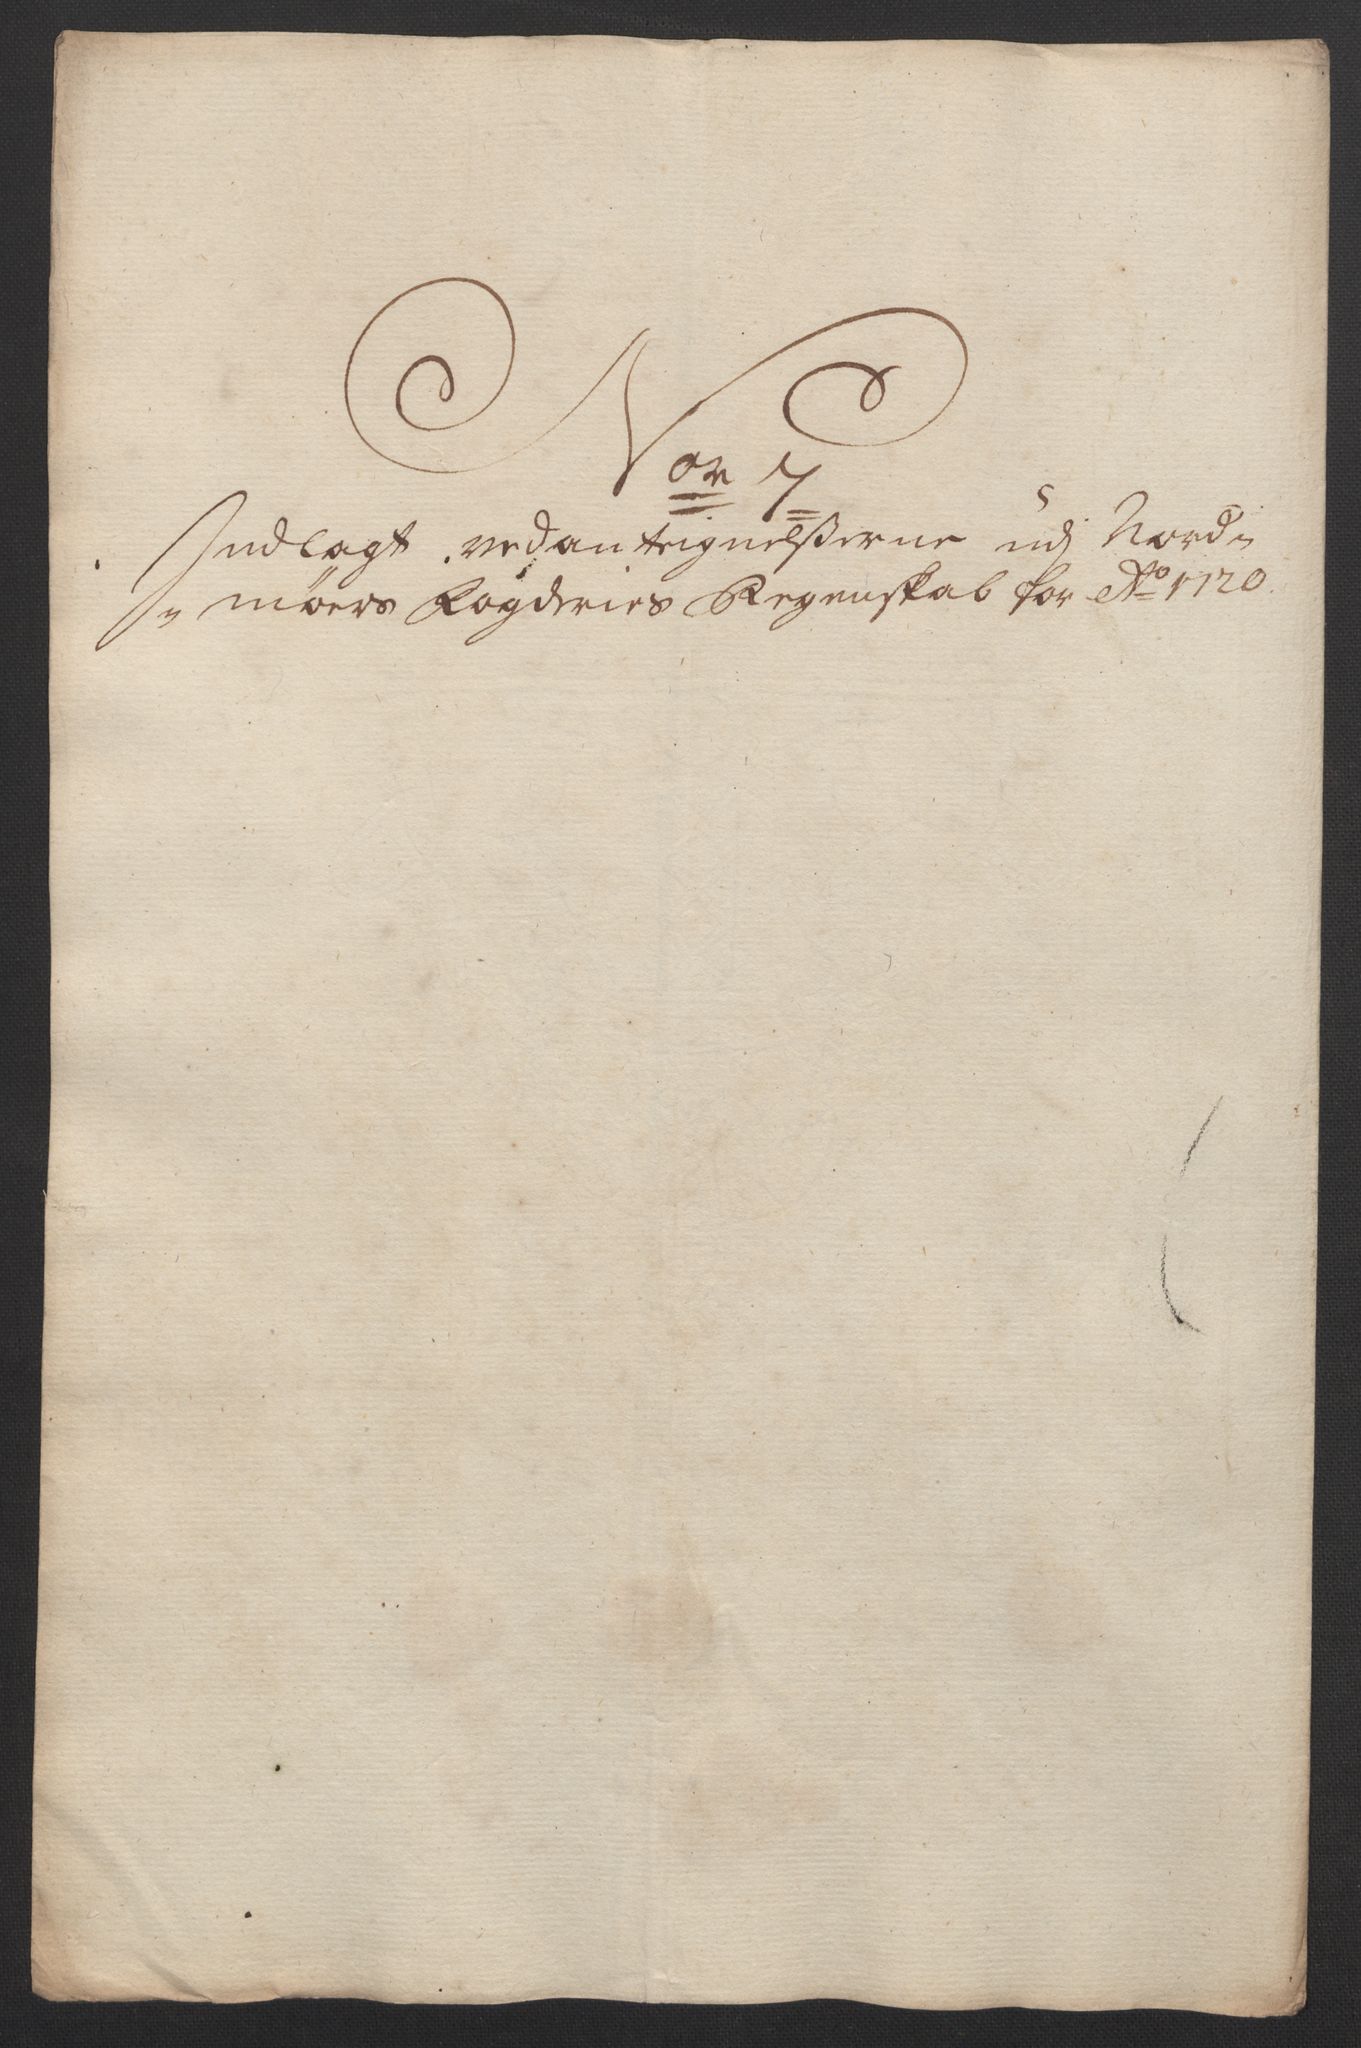 Nor 7
Indlagt ved anteignelßerne udj Nord=
=møers Fogderies Regenskab for Ao 1720.